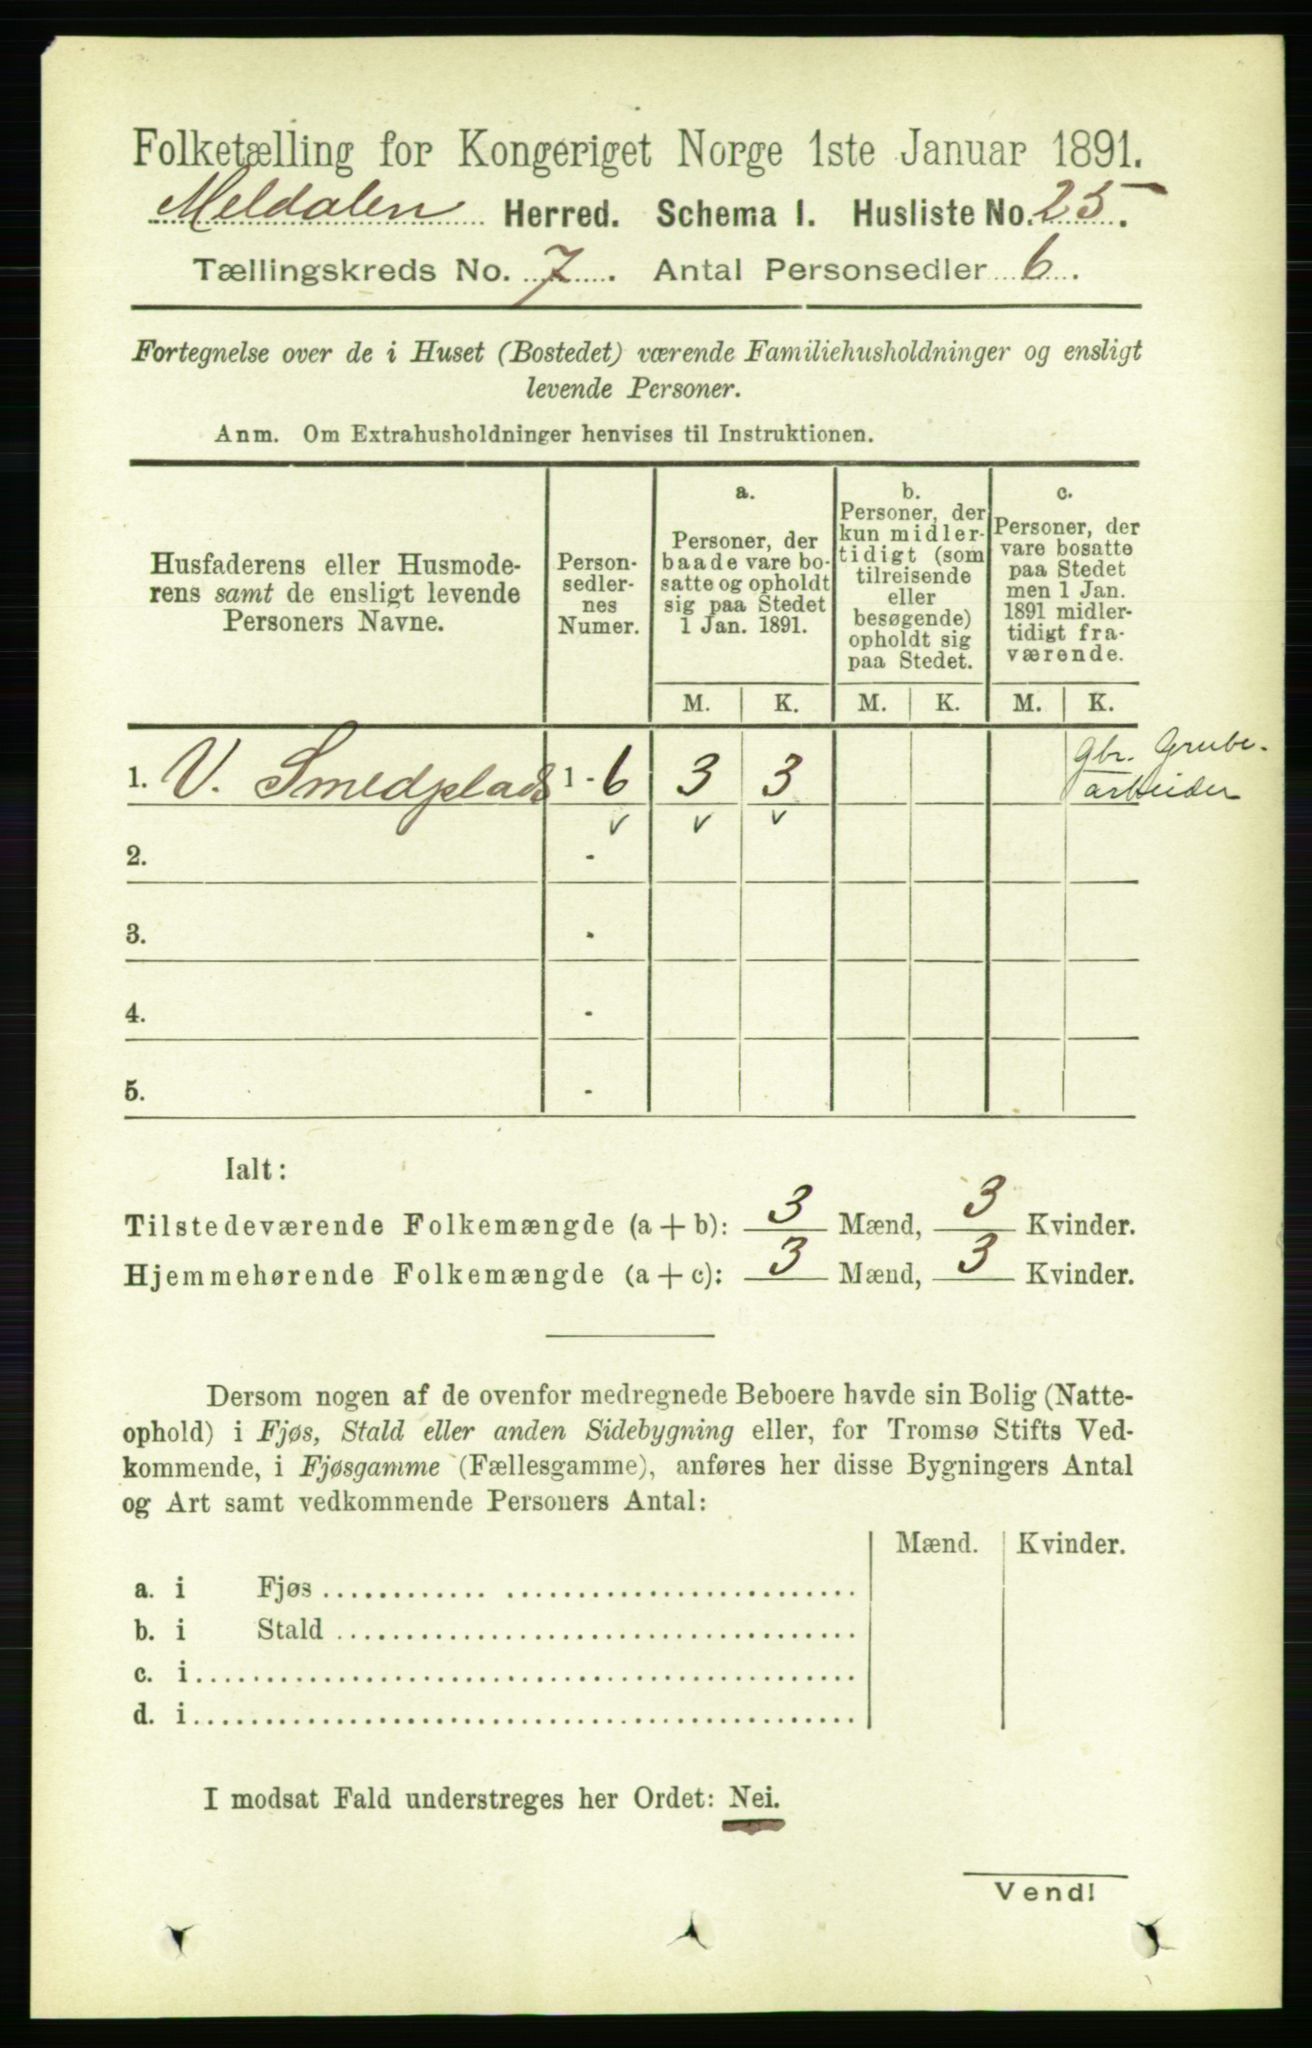 Folketælling for Kongeriget Norge 1ste Januar 1891.
Meldalen Herred. Schema I. Husliste No. 25.
Tællingskreds No. 7. Antal Personsedler 6.
Fortegnelse over de i Huset (Bostedet) værende Familiehusholdninger og ensligt
levende Personer.
Anm. Om Extrahusholdninger henvises til Instruktionen.
Husfaderens eller Husmode-
rens samt de ensligt levende
Personers Navne.
Person-
sedler-
nes
Numer.
a.
Personer, der
baade vare bo-
satte og opholdt
sig paa Stedet
1 Jan. 1891.
b.
Personer, der
kun midler-
tidigt (som
tilreisende
eller
besøgende)
opholdt sig
paa Stedet.
c.
Personer, der
vare bosatte
paa Stedet
men 1 Jan.
1891 midler-
tidigt fra-
værende.
M. K. M. K. M. K.
1. V. Smedplads 1 - 6 3 3
Gbr. Grube-
arbeider
2. -
3. -
4. -
5. -
Ialt:
Tilstedeværende Folkemængde (a + b): 3 Mænd, 3 Kvinder.
Hjemmehørende Folkemængde (a + c): 3 Mænd, 3 Kvinder.
Dersom nogen af de ovenfor medregnede Beboere havde sin Bolig (Natte-
ophold) i Fjøs, Stald eller anden Sidebygning eller, for Tromsø Stifts Ved-
kommende, i Fjøsgamme (Fællesgamme), anføres her disse Bygningers Antal
og Art samt vedkommende Personers Antal:
Mænd. Kvinder.
a. i Fjøs
b. i Stald
c. i
d. i
I modsat Fald understreges her Ordet: Nei.
Vend!